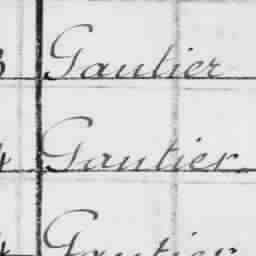 Gaulier
Gautier
Gautier